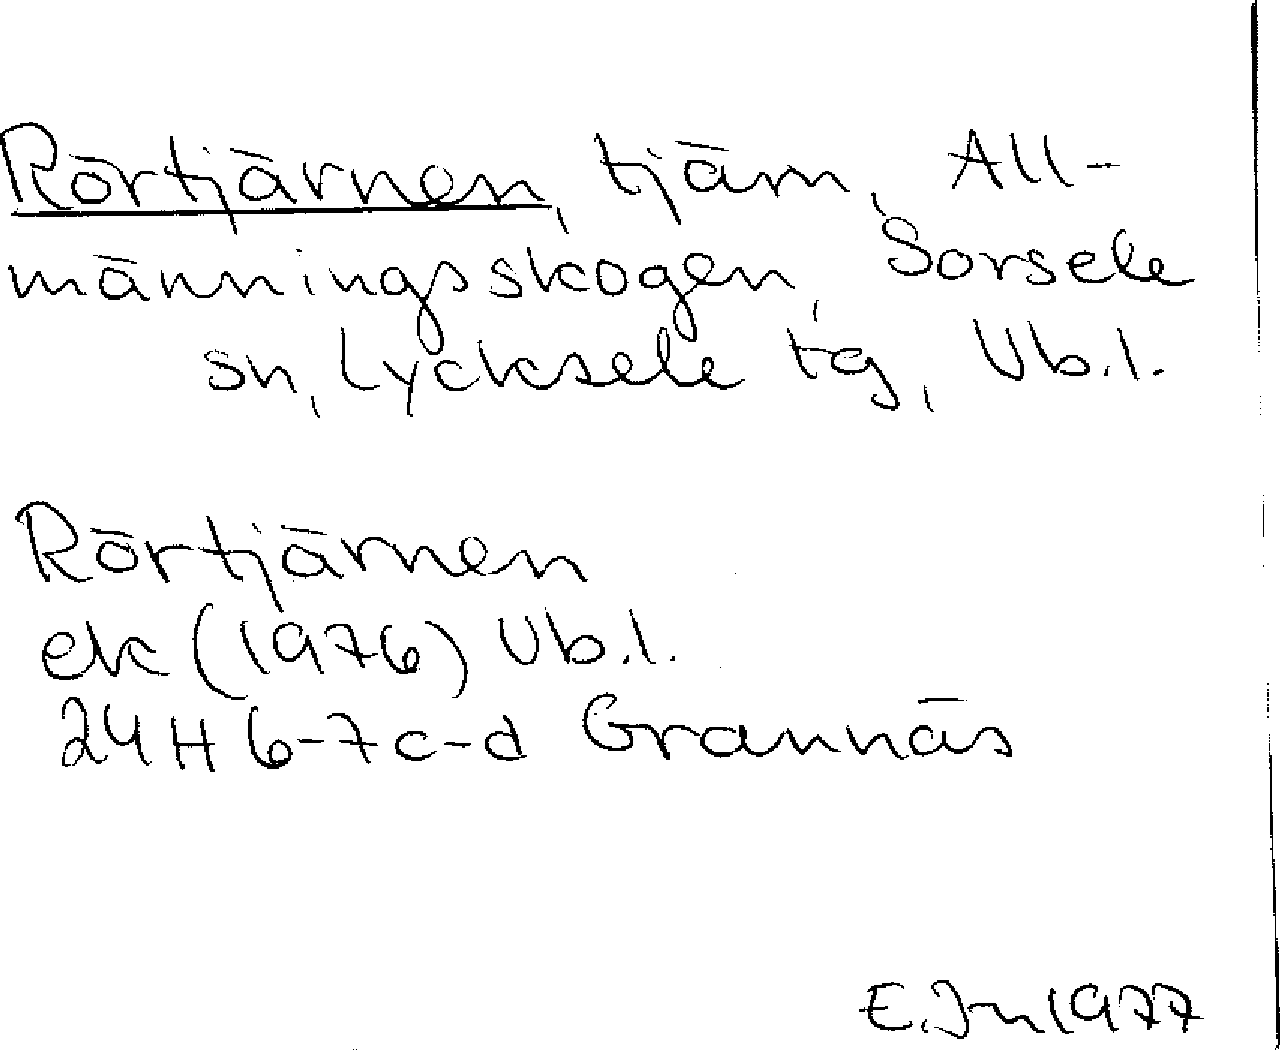 Rörtjärnen, tjärn, All-
männingsskogen, Sorsele
sn, Lycksele tg, Vb.l.
Rörtjärnen
ek (1976) Vb.l.
24H 6-7c-d Grannäs
E.Jn 1977